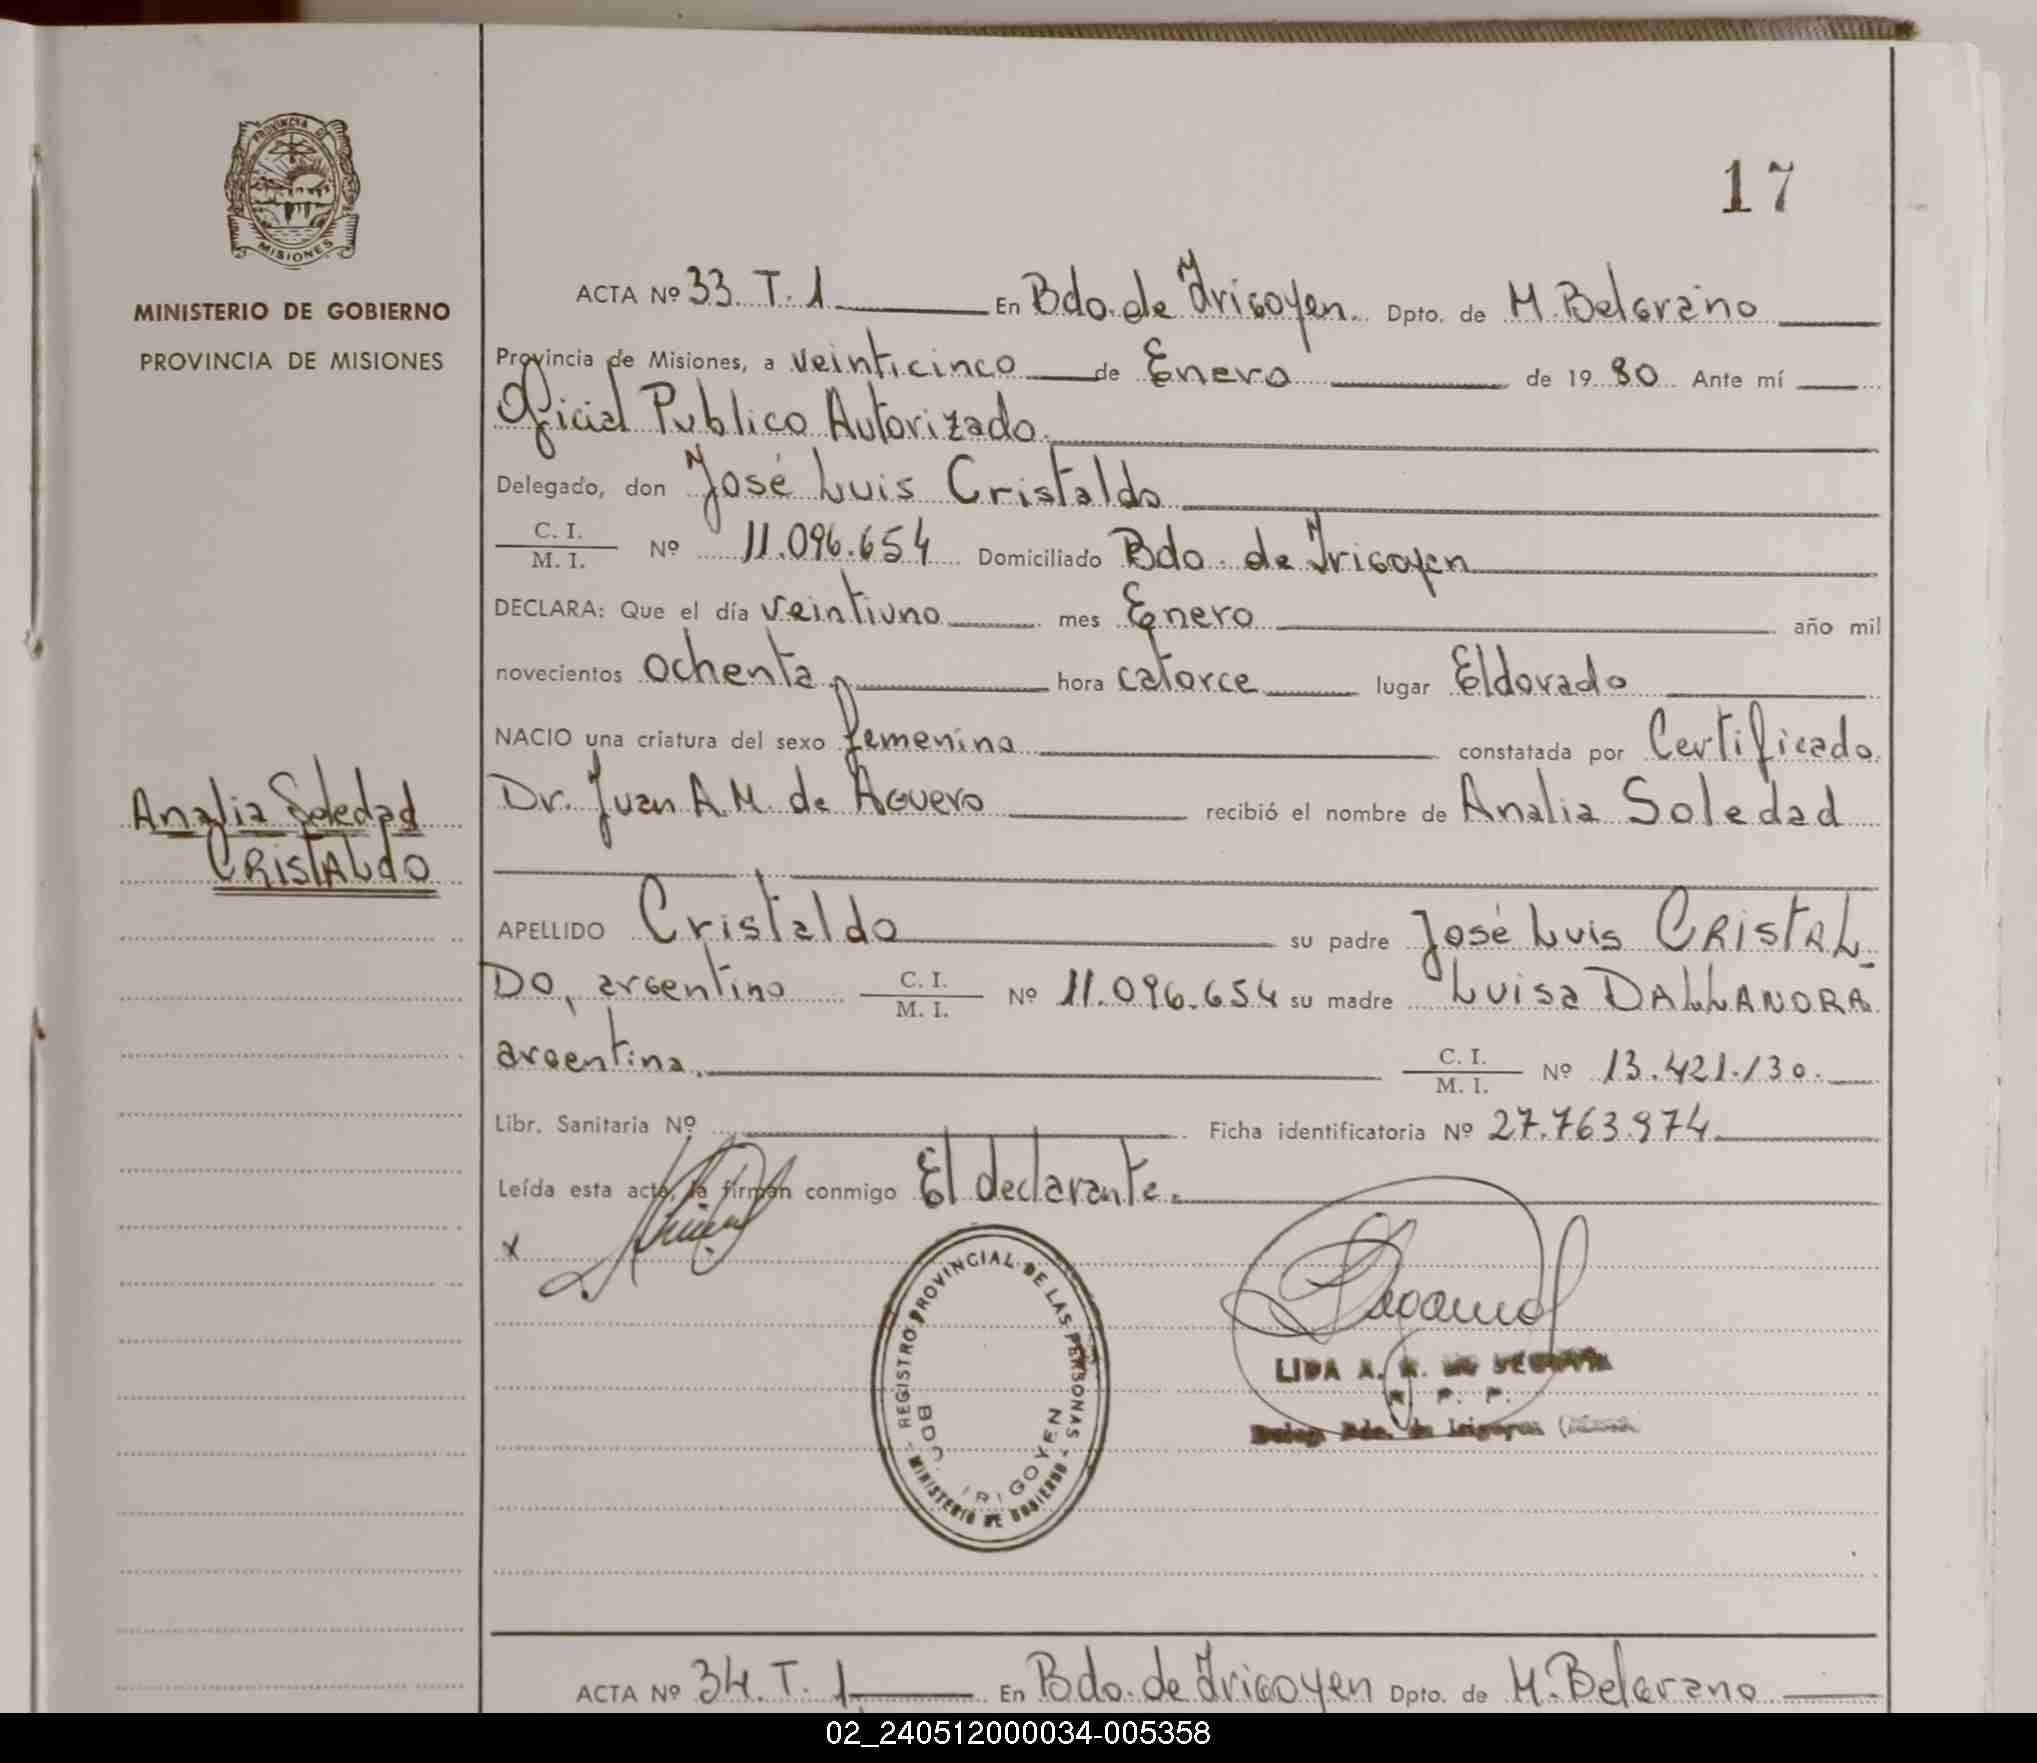 PROVINCIA DE
MISIONES
MINISTERIO DE GOBIERNO
PROVINCIA DE MISIONES
Analia Soledad
CRISTALDO
17
ACTA Nº 33 T. 1 En Bdo. de Irigoyen. Dpto. de M. Belgrano
Provincia de Misiones, a veinticinco de Enero de 19 80 Ante mí
Oficial Publico Autorizado.
Delegado, don José Luis Cristaldo
C. I.
M. I. Nº 11.096.654 Domiciliado Bdo. de Irigoyen
DECLARA: Que el día veintiuno mes Enero año mil
novecientos ochenta hora catorce lugar Eldorado
NACIO una criatura del sexo femenino constatada por Certificado.
Dr. Juan A.M. de Aguero recibió el nombre de Analia Soledad
APELLIDO Cristaldo su padre José Luis CRISTAL-
DO, argentino C. I. M. I. Nº 11.096.654 su madre Luisa DALLANORA
argentina. C. I. M. I. Nº 13.421.130.
Libr. Sanitaria Nº Ficha identificatoria Nº 27.763.974
Leída esta acta, la firman conmigo El declarante.
x
REGISTRO PROVINCIAL DE LAS PERSONAS
MINISTERIO DE GOBIERNO
BDO. IRIGOYEN
LIDA A.
R. P. P.
Deleg. Bdo. de Irigoyen
ACTA Nº 34. T. 1 En Bdo. de Irigoyen Dpto. de M. Belgrano
02_240512000034-005358